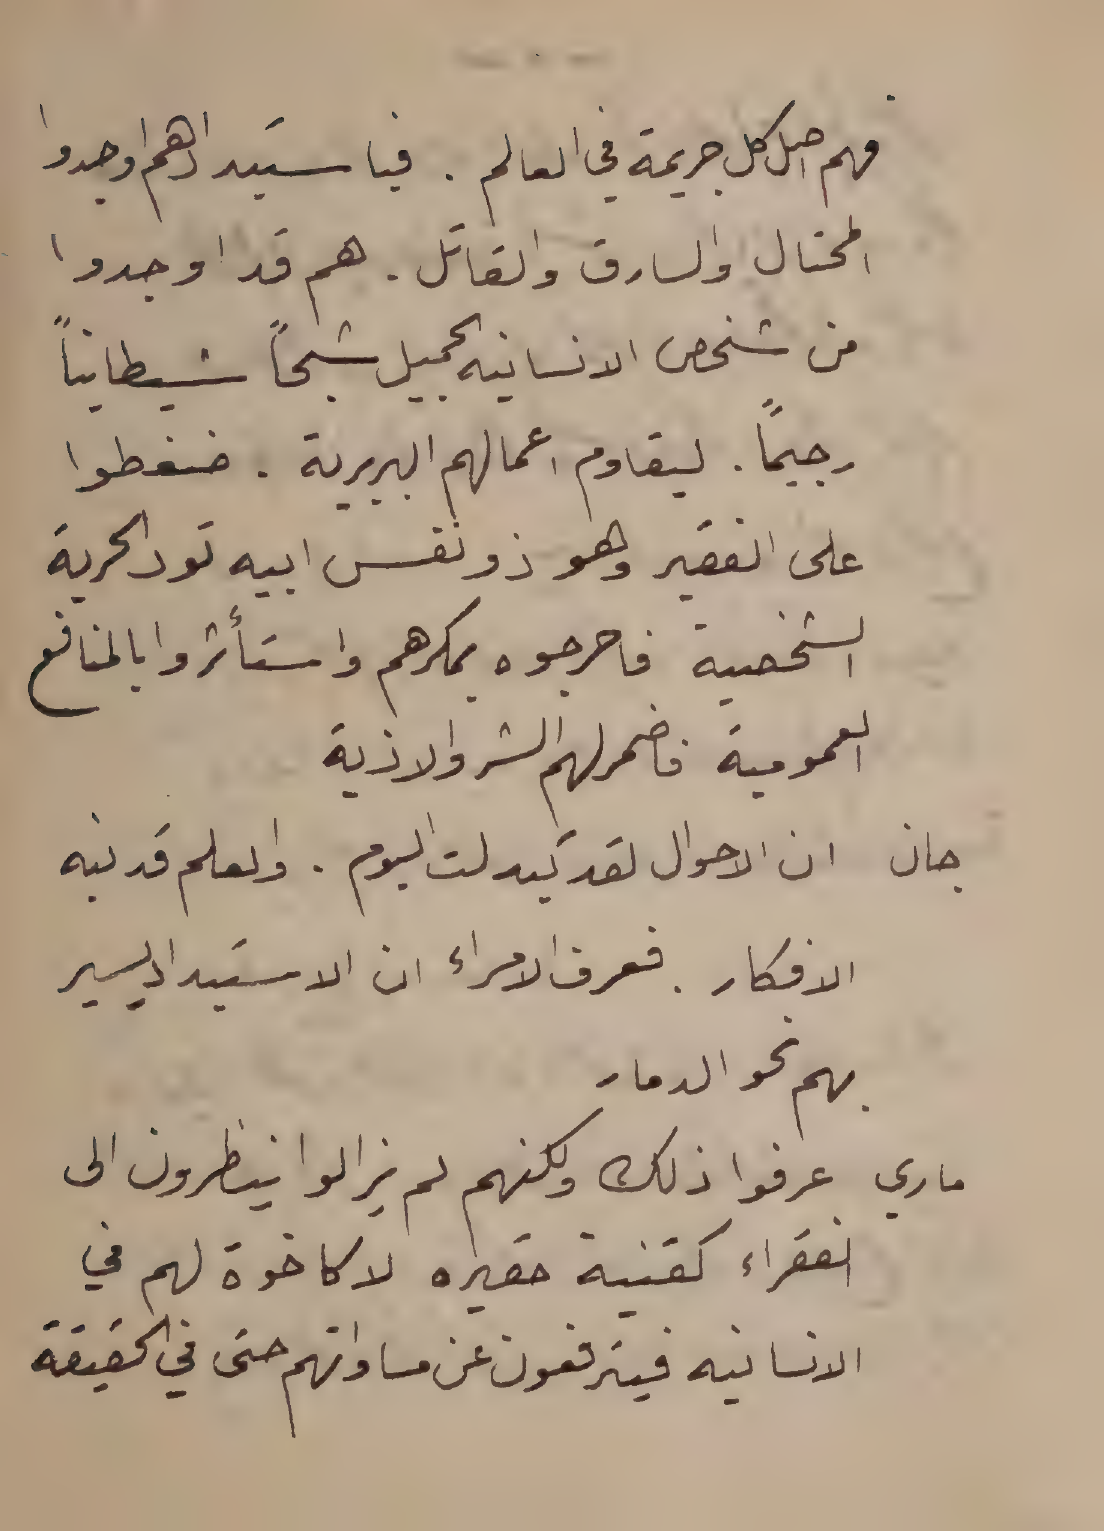 فهم اصل كل جريمة في العالم . فباستبدادهم اوجدوا
المحتال والسارق والقاتل . هم قد اوجدوا
من شخص الانسانيه الجميل شبحاً شيطانياً
رجيماً . ليقاوم اعمالهم البربرية . ضغطوا
على الفقير وهو ذو نفس ابيه تود الحرية
الشخصية فاحرجوه بمكرهم واستأثروا بالمنافع
العمومية فاضمر لهم الشر والاذية
جان ان الاحوال لقد تبدلت اليوم . والعلم قد نبه
الافكار . فعرف الامراء ان الاستبداد يسير
بهم نحو الدمار
ماري عرفوا ذلك ولكنهم لم يزالوا ينظرون الى
الفقراء كقنية حقيره لا كاخوة لهم في
الانسانيه فيترفعون عن مساواتهم حتى في الحقيقة